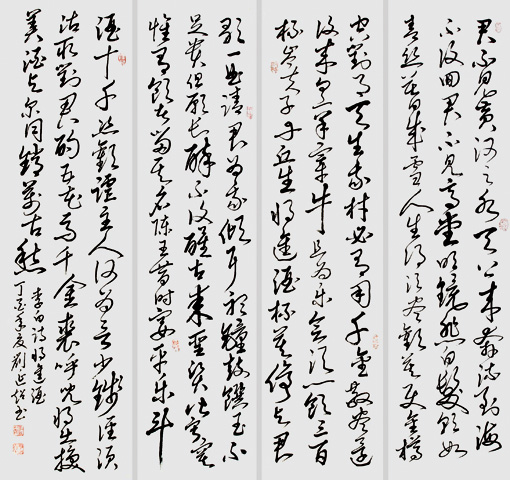 君不见黄河之水天上来奔流到海
不复回君不见高堂明镜悲白发朝如
青丝暮成雪人生得意须尽欢莫使金樽
空对月天生我材必有用千金散尽还
复来烹羊宰牛且为乐会须一饮三百
杯岑夫子丹丘生将进酒杯莫停与君
歌一曲请君为我倾耳听钟鼓馔玉不
足贵但愿长醉不复醒古来圣贤皆寂寞
惟有饮者留其名陈王昔时宴平乐斗
酒十千恣欢谑主人何为言少钱径须
沽取对君酌五花马千金裘呼儿将出换
美酒与尔同销万古愁
李白诗将进酒